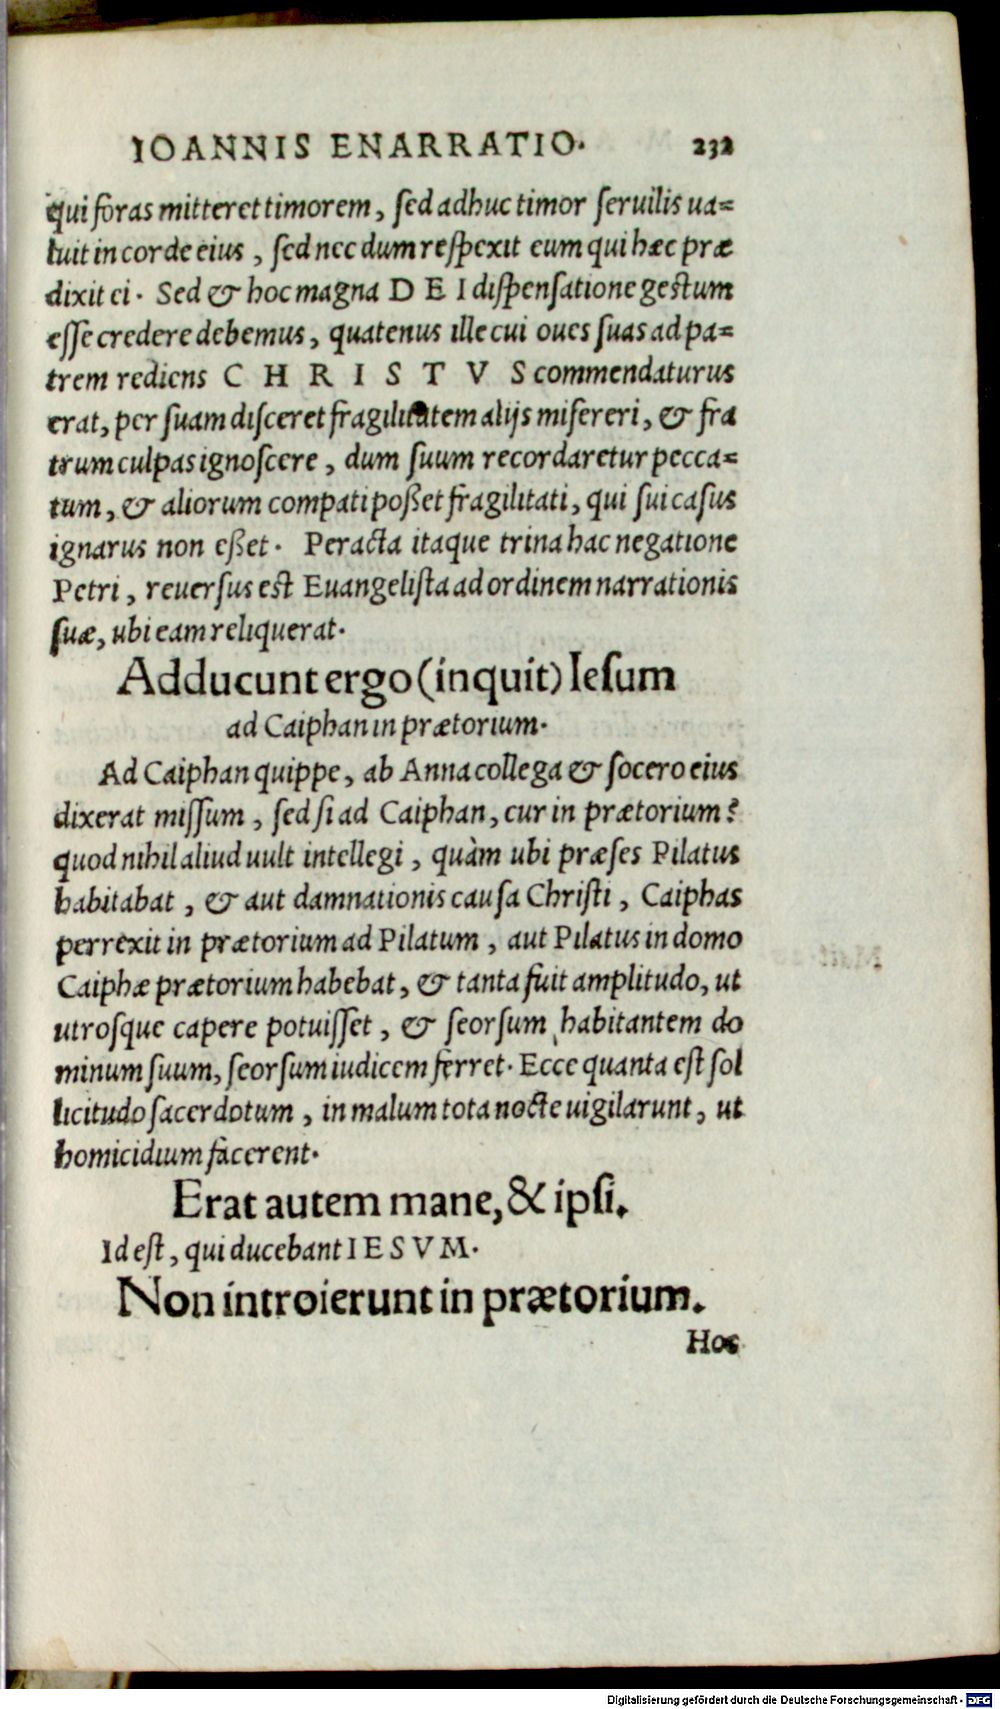 IOANNIS ENARRATIO. 232
qui foras mitteret timorem, sed adhuc timor seruilis ua=
luit in corde eius, sed nec dum respexit eum qui hæc præ
dixit ei. Sed & hoc magna DEI dispensatione gestum
esse credere debemus, quatenus ille cui oues suas ad pa=
trem rediens CHRISTVS commendaturus
erat, per suam disceret fragilitatem alijs misereri, & fra
trum culpas ignoscere, dum suum recordaretur pecca=
tum, & aliorum compati poßet fragilitati, qui sui casus
ignarus non eßet. Peracta itaque trina hac negatione
Petri, reuersus est Euangelista ad ordinem narrationis
suæ, ubi eam reliquerat.
Adducunt ergo (inquit) Iesum
ad Caiphan in prætorium.
Ad Caiphan quippe, ab Anna collega & socero eius
dixerat missum, sed si ad Caiphan, cur in prætorium?
quod nihil aliud uult intellegi, quàm ubi præses Pilatus
habitabat, & aut damnationis causa Christi, Caiphas
perrexit in prætorium ad Pilatum, aut Pilatus in domo
Caiphæ prætorium habebat, & tanta fuit amplitudo, ut
utrosque capere potuisset, & seorsum habitantem do
minum suum, seorsum iudicem ferret. Ecce quanta est sol
licitudo sacerdotum, in malum tota nocte uigilarunt, ut
homicidium facerent.
Erat autem mane, & ipsi.
Id est, qui ducebant IESVM.
Non introierunt in prætorium.
Hoc
Digitalisierung gefördert durch die Deutsche Forschungsgemeinschaft - DFG